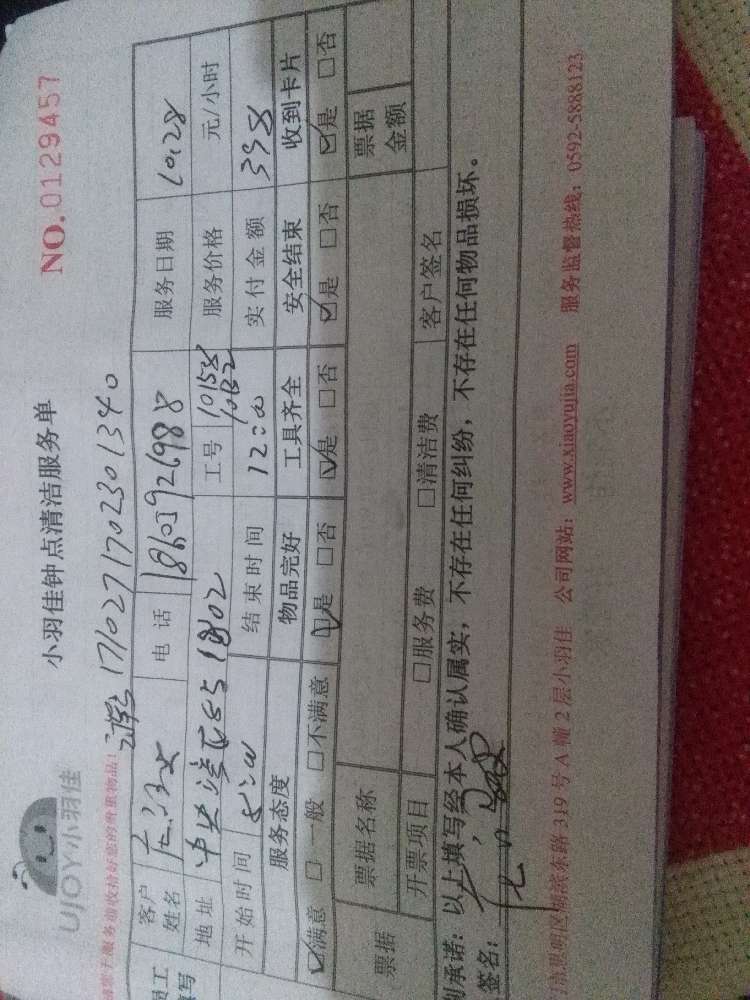 UJOY小羽佳
小羽佳钟点清洁服务单
NO.0129457
1710271702301340
客户姓名 电话 18609926988 服务日期 10.28
地址 中央 工号 10158 服务价格 元/小时
开始时间 8:00 结束时间 12:00 实付金额 398
服务态度 物品完好 工具齐全 安全结束 收到卡片
☑满意 □一般 □不满意 ☑是 □否 ☑是 □否 ☑是 □否 ☑是 □否
票据 票据名称 票据金额
开票项目 □服务费 □清洁费 客户签名
承诺：以上填写经本人确认属实，不存在任何纠纷，不存在任何物品损坏。
签名：
思明区湖滨东路319号A幢2层小羽佳 公司网站：www.xiaoyujia.com 服务监督热线：0592-5888123